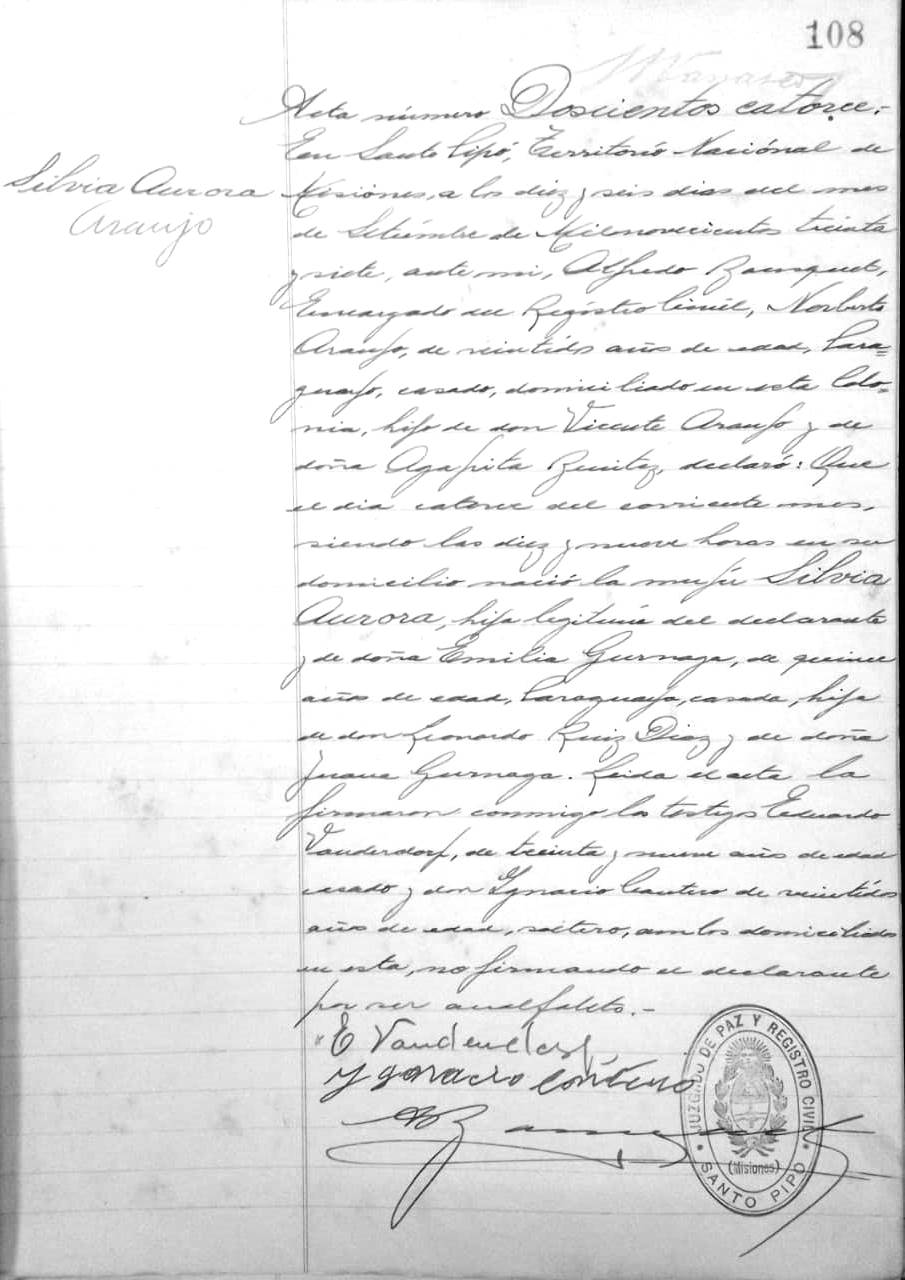 108
Acta número Doscientos catorce.-
En Santo Pipó, Territorio Nacional de
Silvia Aurora
Araujo
Misiones, a los diez y seis dias del mes
de Setiémbre de Milnovecientos treinta
y siete, ante mi, Alfredo
Encargado del Registro Civil, Norberto
Araujo, de veintidós años de edad, Para=
guayo, casado, domiciliado en esta Colo=
nia, hijo de don Vicente Araujo y de
doña Agapita Benitez, declaró: Que
el dia catorce del corriente mes,
siendo las diez y nueve horas en su
domicilio nació la mujér Silvia
Aurora, hija legitima del declarante
y de doña Emilia Gurnaga, de quince
años de edad, Paraguaya, casada, hija
de don Leonardo Ruiz Diaz y de doña
Juana Gurnaga. Leida el acta la
firmaron conmigo los testigos Eduardo
Vanderdorf, de treinta y nueve años de edad
casado y don Ygnacio Cantero de veintidós
años de edad, soltero, ambos domiciliados
en esta, no firmando el declarante
por ser analfabeto.-
E Vanderdorf
Ygnacio
JUZGADO DE PAZ Y REGISTRO CIVIL
(Misiones)
SANTO PIPO